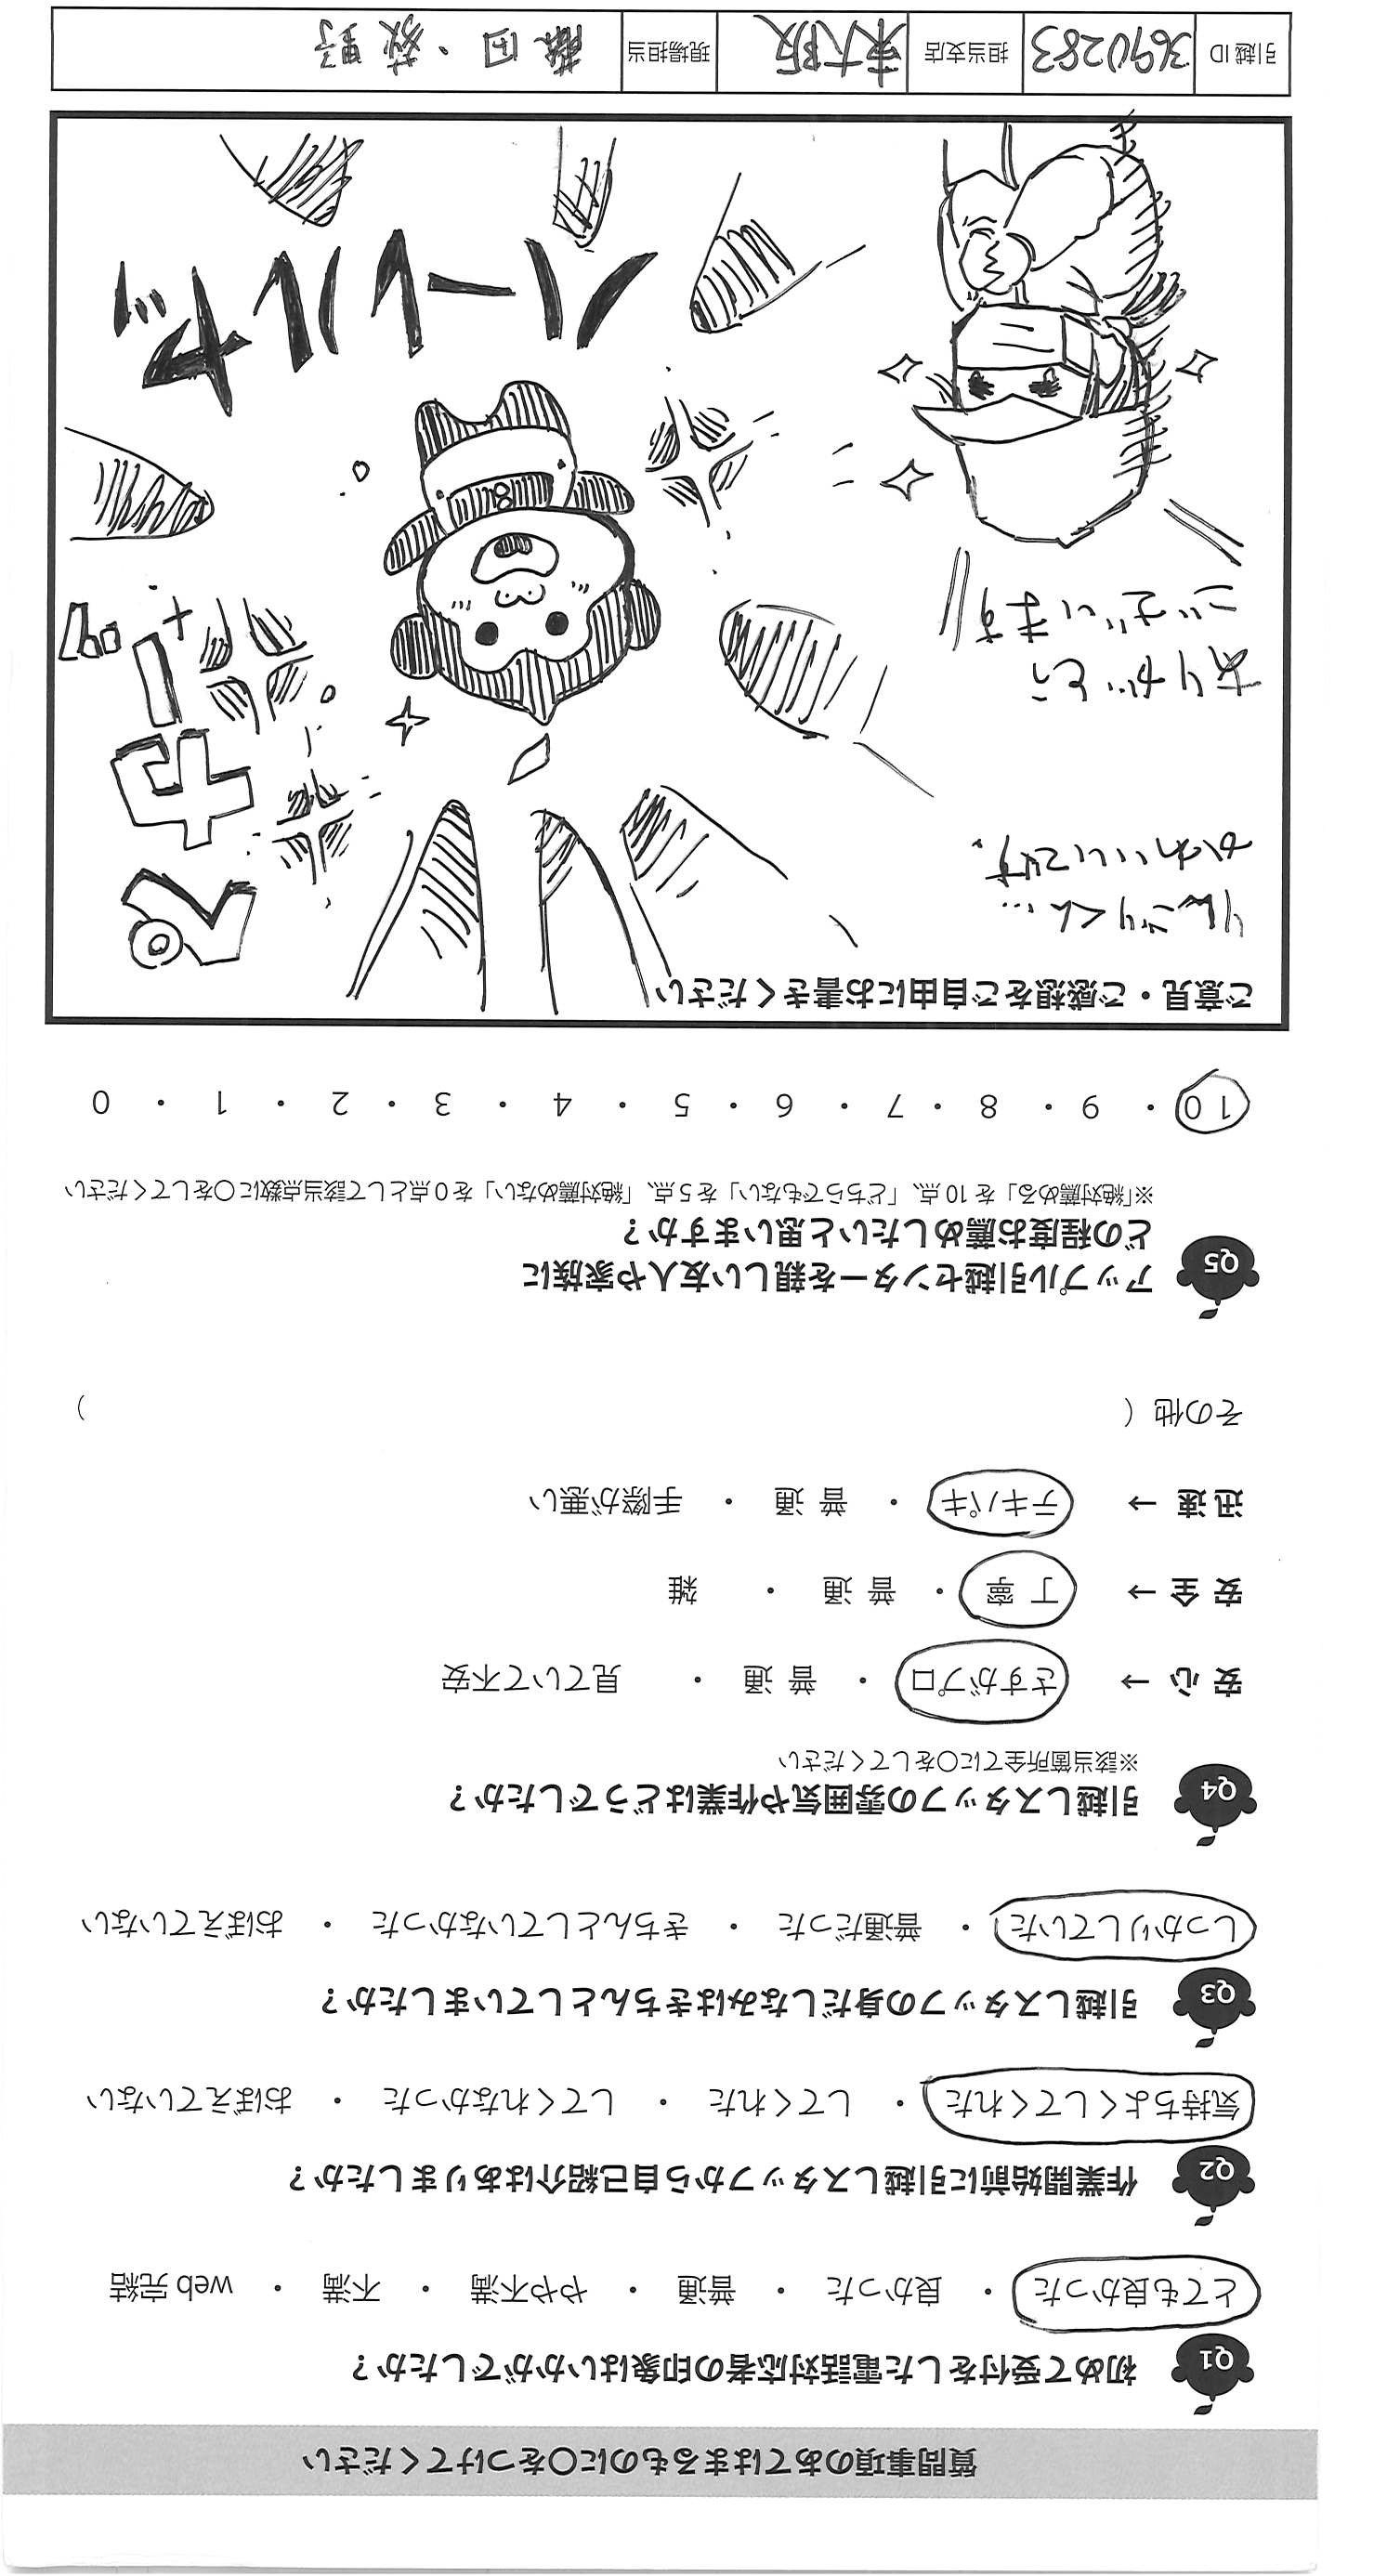 質問事項のあてはまるものに〇をつけてください
Q1 初めて受付をした電話対応者の印象はいかがでしたか？
とても良かった ・ 良かった ・ 普通 ・ やや不満 ・ 不満 ・ web 完結
Q2 作業開始前に引越しスタッフから自己紹介はありましたか？
気持ちよくしてくれた ・ してくれた ・ してくれなかった ・ おぼえていない
Q3 引越しスタッフの身だしなみはきちんとしていましたか？
しっかりしていた ・ 普通だった ・ きちんとしていなかった ・ おぼえていない
Q4 引越しスタッフの雰囲気や作業はどうでしたか？
※該当箇所全てに〇をしてください
安 心 → さすがプロ ・ 普 通 ・ 見ていて不安
安 全 → 丁 寧 ・ 普 通 ・ 雑
迅 速 → テキパキ ・ 普 通 ・ 手際が悪い
その他（ ）
Q5 アップル引越センターを親しい友人や家族に
どの程度お薦めしたいと思いますか？
※「絶対薦める」を 10 点、「どちらでもない」を 5 点、「絶対薦めない」を 0 点として該当点数に〇をしてください
10 ・ 9 ・ 8 ・ 7 ・ 6 ・ 5 ・ 4 ・ 3 ・ 2 ・ 1 ・ 0
ご意見・ご感想をご自由にお書きください
りんごりくん…
かわいいです。
ありがとう
ございます
引越 ID 3690283 担当支店 東大阪 現場担当 藤田、荻野